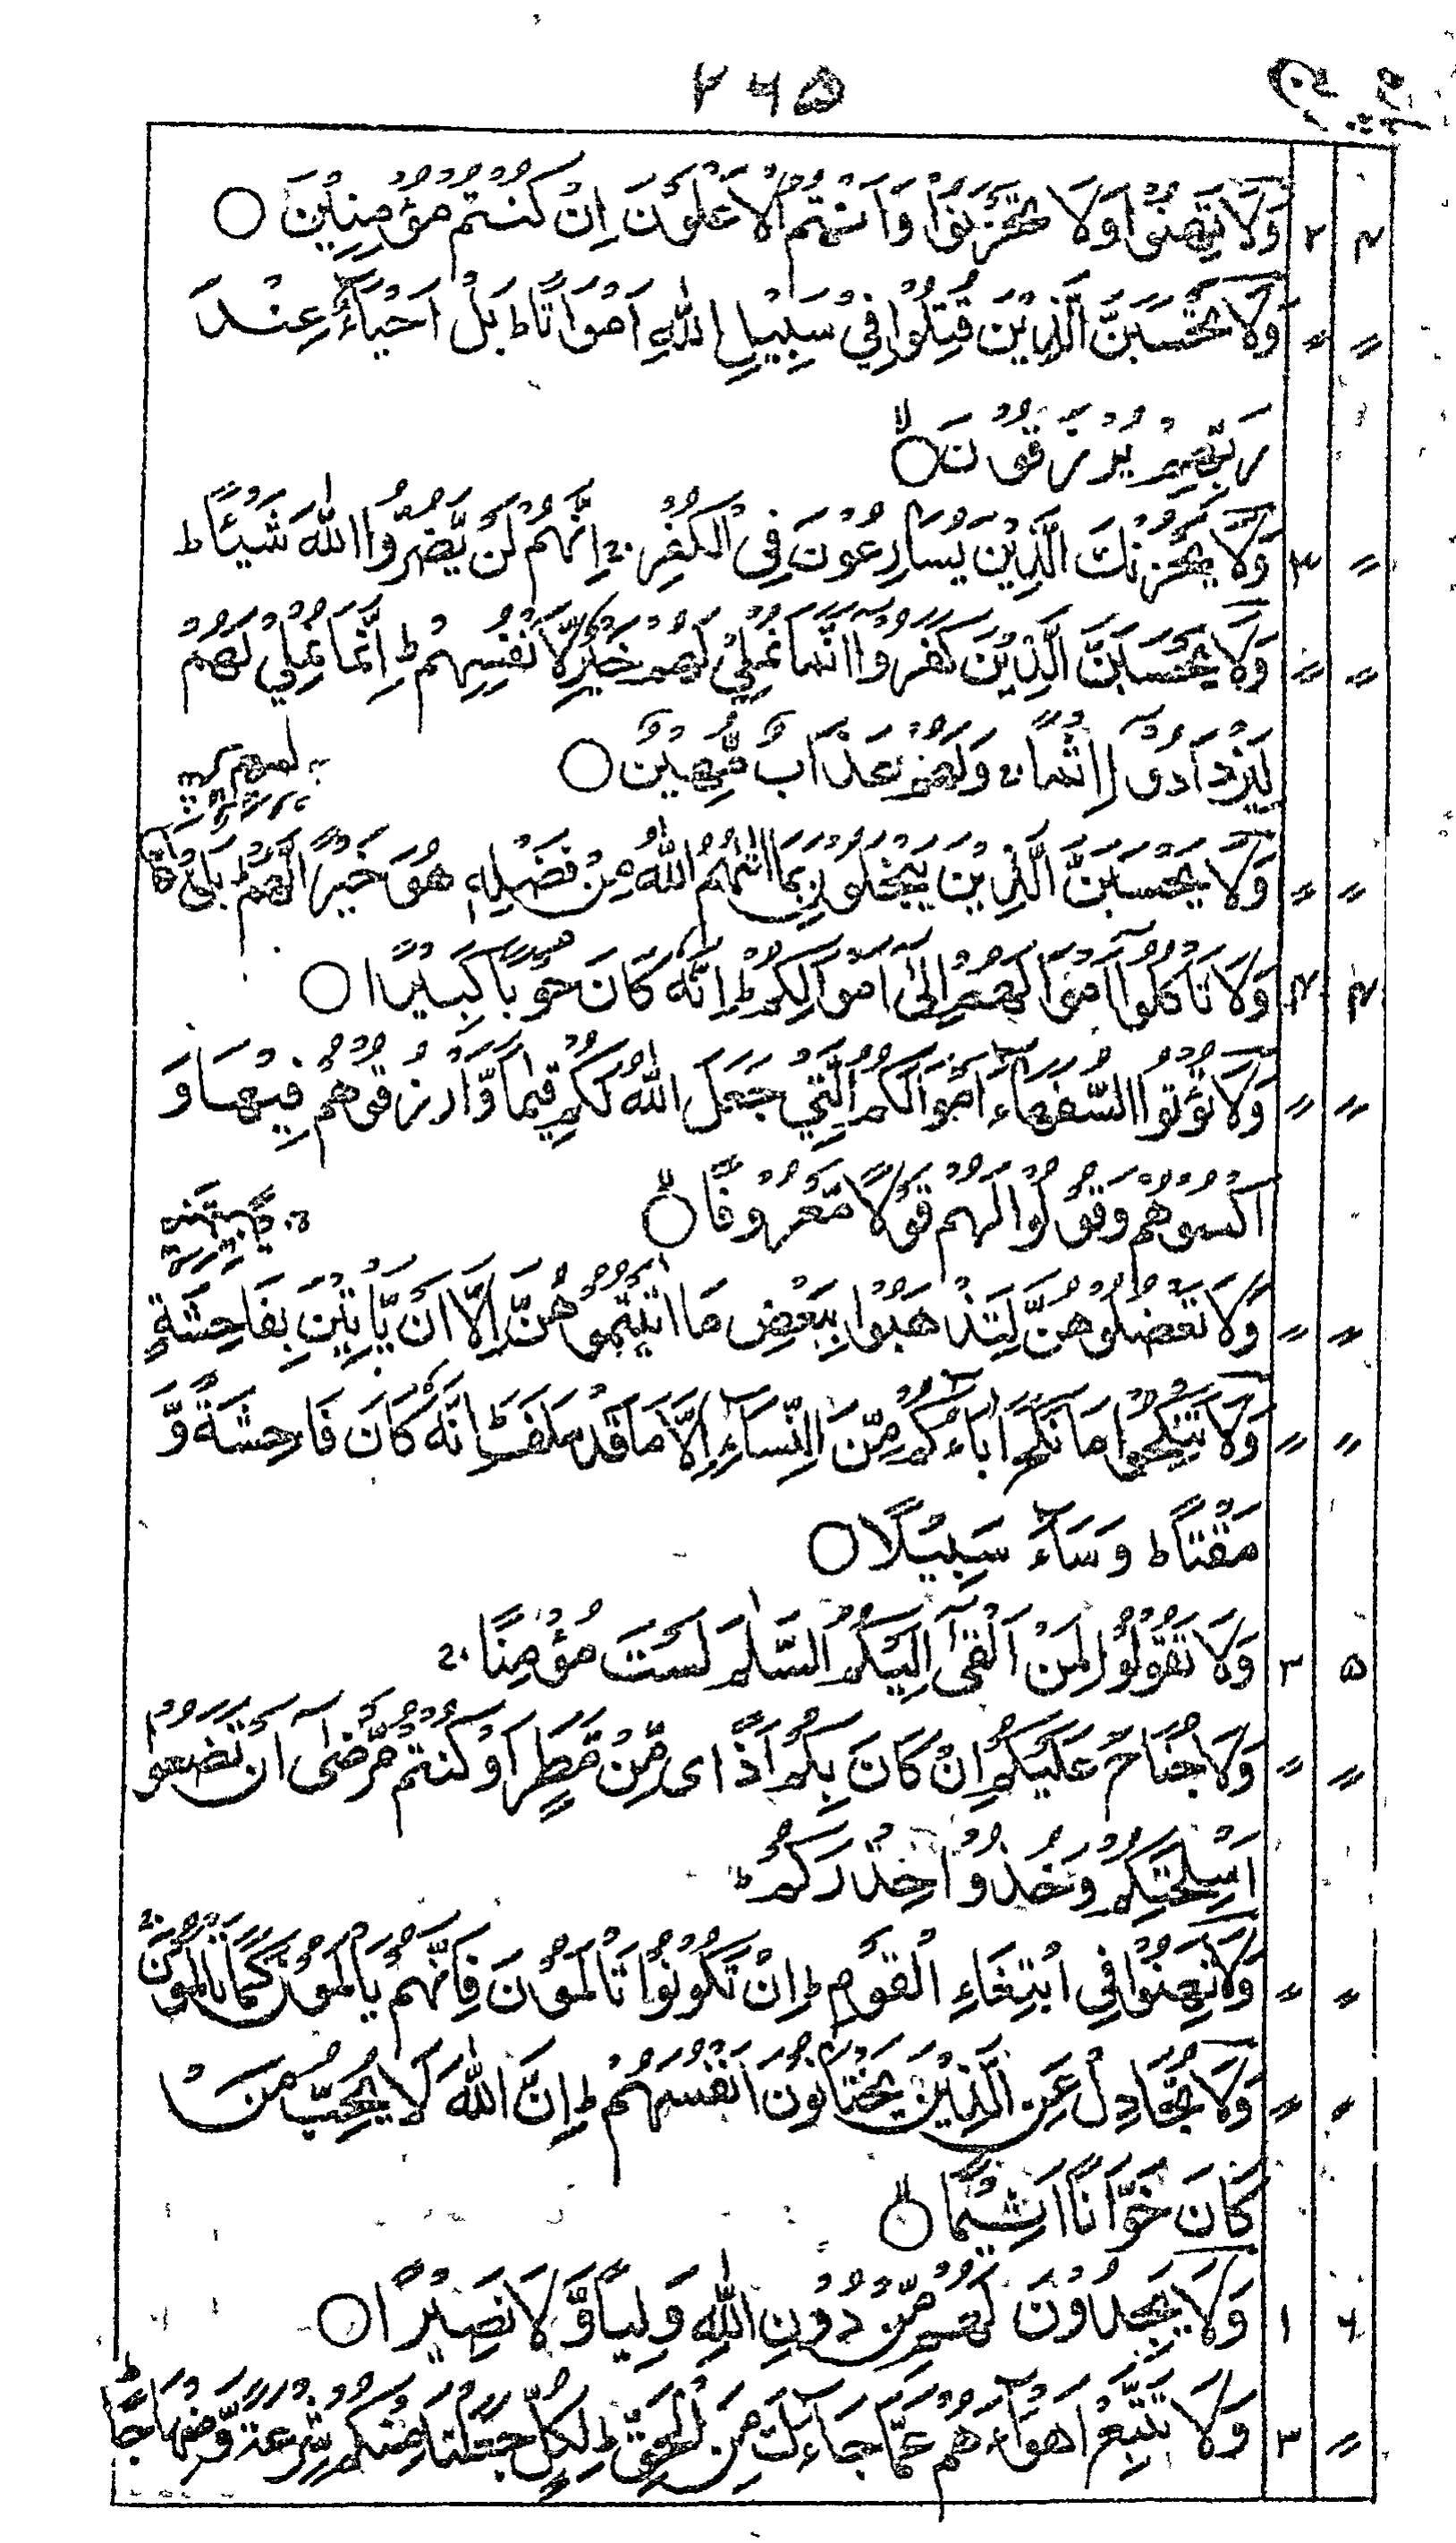 ۲۶۵
۴ ۲ وَلَا تَهِنُوْا وَلَا تَحْزَنُوْا وَاَنْتُمُ الْاَعْلَوْنَ اِنْ كُنْتُمْ مُّؤْمِنِيْنَ ○
〃 〃 وَلَا تَحْسَبَنَّ الَّذِيْنَ قُتِلُوْا فِيْ سَبِيْلِ اللّٰهِ اَمْوَاتًا ط بَلْ اَحْيَآءٌ عِنْدَ
رَبِّهِمْ يُرْزَقُوْنَ ○ۙ
〃 ۳ وَلَا يَحْزُنْكَ الَّذِيْنَ يُسَارِعُوْنَ فِى الْكُفْرِ ج اِنَّهُمْ لَنْ يَّضُرُّوا اللّٰهَ شَيْئًا ط
〃 〃 وَلَا يَحْسَبَنَّ الَّذِيْنَ كَفَرُوْۤا اَنَّمَا نُمْلِيْ لَهُمْ خَيْرٌ لِّاَنْفُسِهِمْ ط اِنَّمَا نُمْلِيْ لَهُمْ
لِيَزْدَادُوْۤا اِثْمًا ج وَلَهُمْ عَذَابٌ مُّهِيْنٌ ○
〃 〃 وَلَا يَحْسَبَنَّ الَّذِيْنَ يَبْخَلُوْنَ بِمَاۤ اٰتٰهُمُ اللّٰهُ مِنْ فَضْلِهٖ هُوَ خَيْرًا لَّهُمْ ط بَلْ هُوَ
۴ ۴ وَلَا تَاْكُلُوْۤا اَمْوَالَهُمْ اِلٰۤى اَمْوَالِكُمْ ط اِنَّهٗ كَانَ حُوْبًا كَبِيْرًا ○
〃 〃 وَلَا تُؤْتُوا السُّفَهَآءَ اَمْوَالَكُمُ الَّتِيْ جَعَلَ اللّٰهُ لَكُمْ قِيٰمًا وَّارْزُقُوْهُمْ فِيْهَا وَ
اكْسُوْهُمْ وَقُوْلُوْا لَهُمْ قَوْلًا مَّعْرُوْفًا ○
〃 〃 وَلَا تَعْضُلُوْهُنَّ لِتَذْهَبُوْا بِبَعْضِ مَاۤ اٰتَيْتُمُوْهُنَّ اِلَّاۤ اَنْ يَّاْتِيْنَ بِفَاحِشَةٍ
〃 〃 وَلَا تَنْكِحُوْا مَا نَكَحَ اٰبَآؤُكُمْ مِّنَ النِّسَآءِ اِلَّا مَا قَدْ سَلَفَ ط اِنَّهٗ كَانَ فَاحِشَةً وَّ
مَقْتًا ط وَسَآءَ سَبِيْلًا ○
۵ ۳ وَلَا تَقُوْلُوْا لِمَنْ اَلْقٰۤى اِلَيْكُمُ السَّلٰمَ لَسْتَ مُؤْمِنًا ج
〃 〃 وَلَا جُنَاحَ عَلَيْكُمْ اِنْ كَانَ بِكُمْ اَذًى مِّنْ مَّطَرٍ اَوْ كُنْتُمْ مَّرْضٰۤى اَنْ تَضَعُوْۤا
اَسْلِحَتَكُمْ وَخُذُوْا حِذْرَكُمْ ط
〃 〃 وَلَا تَهِنُوْا فِى ابْتِغَآءِ الْقَوْمِ ط اِنْ تَكُوْنُوْا تَاْلَمُوْنَ فَاِنَّهُمْ يَاْلَمُوْنَ كَمَا تَاْلَمُوْنَ ج
〃 〃 وَلَا تُجَادِلْ عَنِ الَّذِيْنَ يَخْتَانُوْنَ اَنْفُسَهُمْ ط اِنَّ اللّٰهَ لَا يُحِبُّ مَنْ
كَانَ خَوَّانًا اَثِيْمًا ○ۙ
۶ ۱ وَلَا يَجِدُوْنَ لَهُمْ مِّنْ دُوْنِ اللّٰهِ وَلِيًّا وَّلَا نَصِيْرًا ○
〃 ۳ وَلَا تَتَّبِعْ اَهْوَآءَهُمْ عَمَّا جَآءَكَ مِنَ الْحَقِّ ط لِكُلٍّ جَعَلْنَا مِنْكُمْ شِرْعَةً وَّمِنْهَاجًا ط